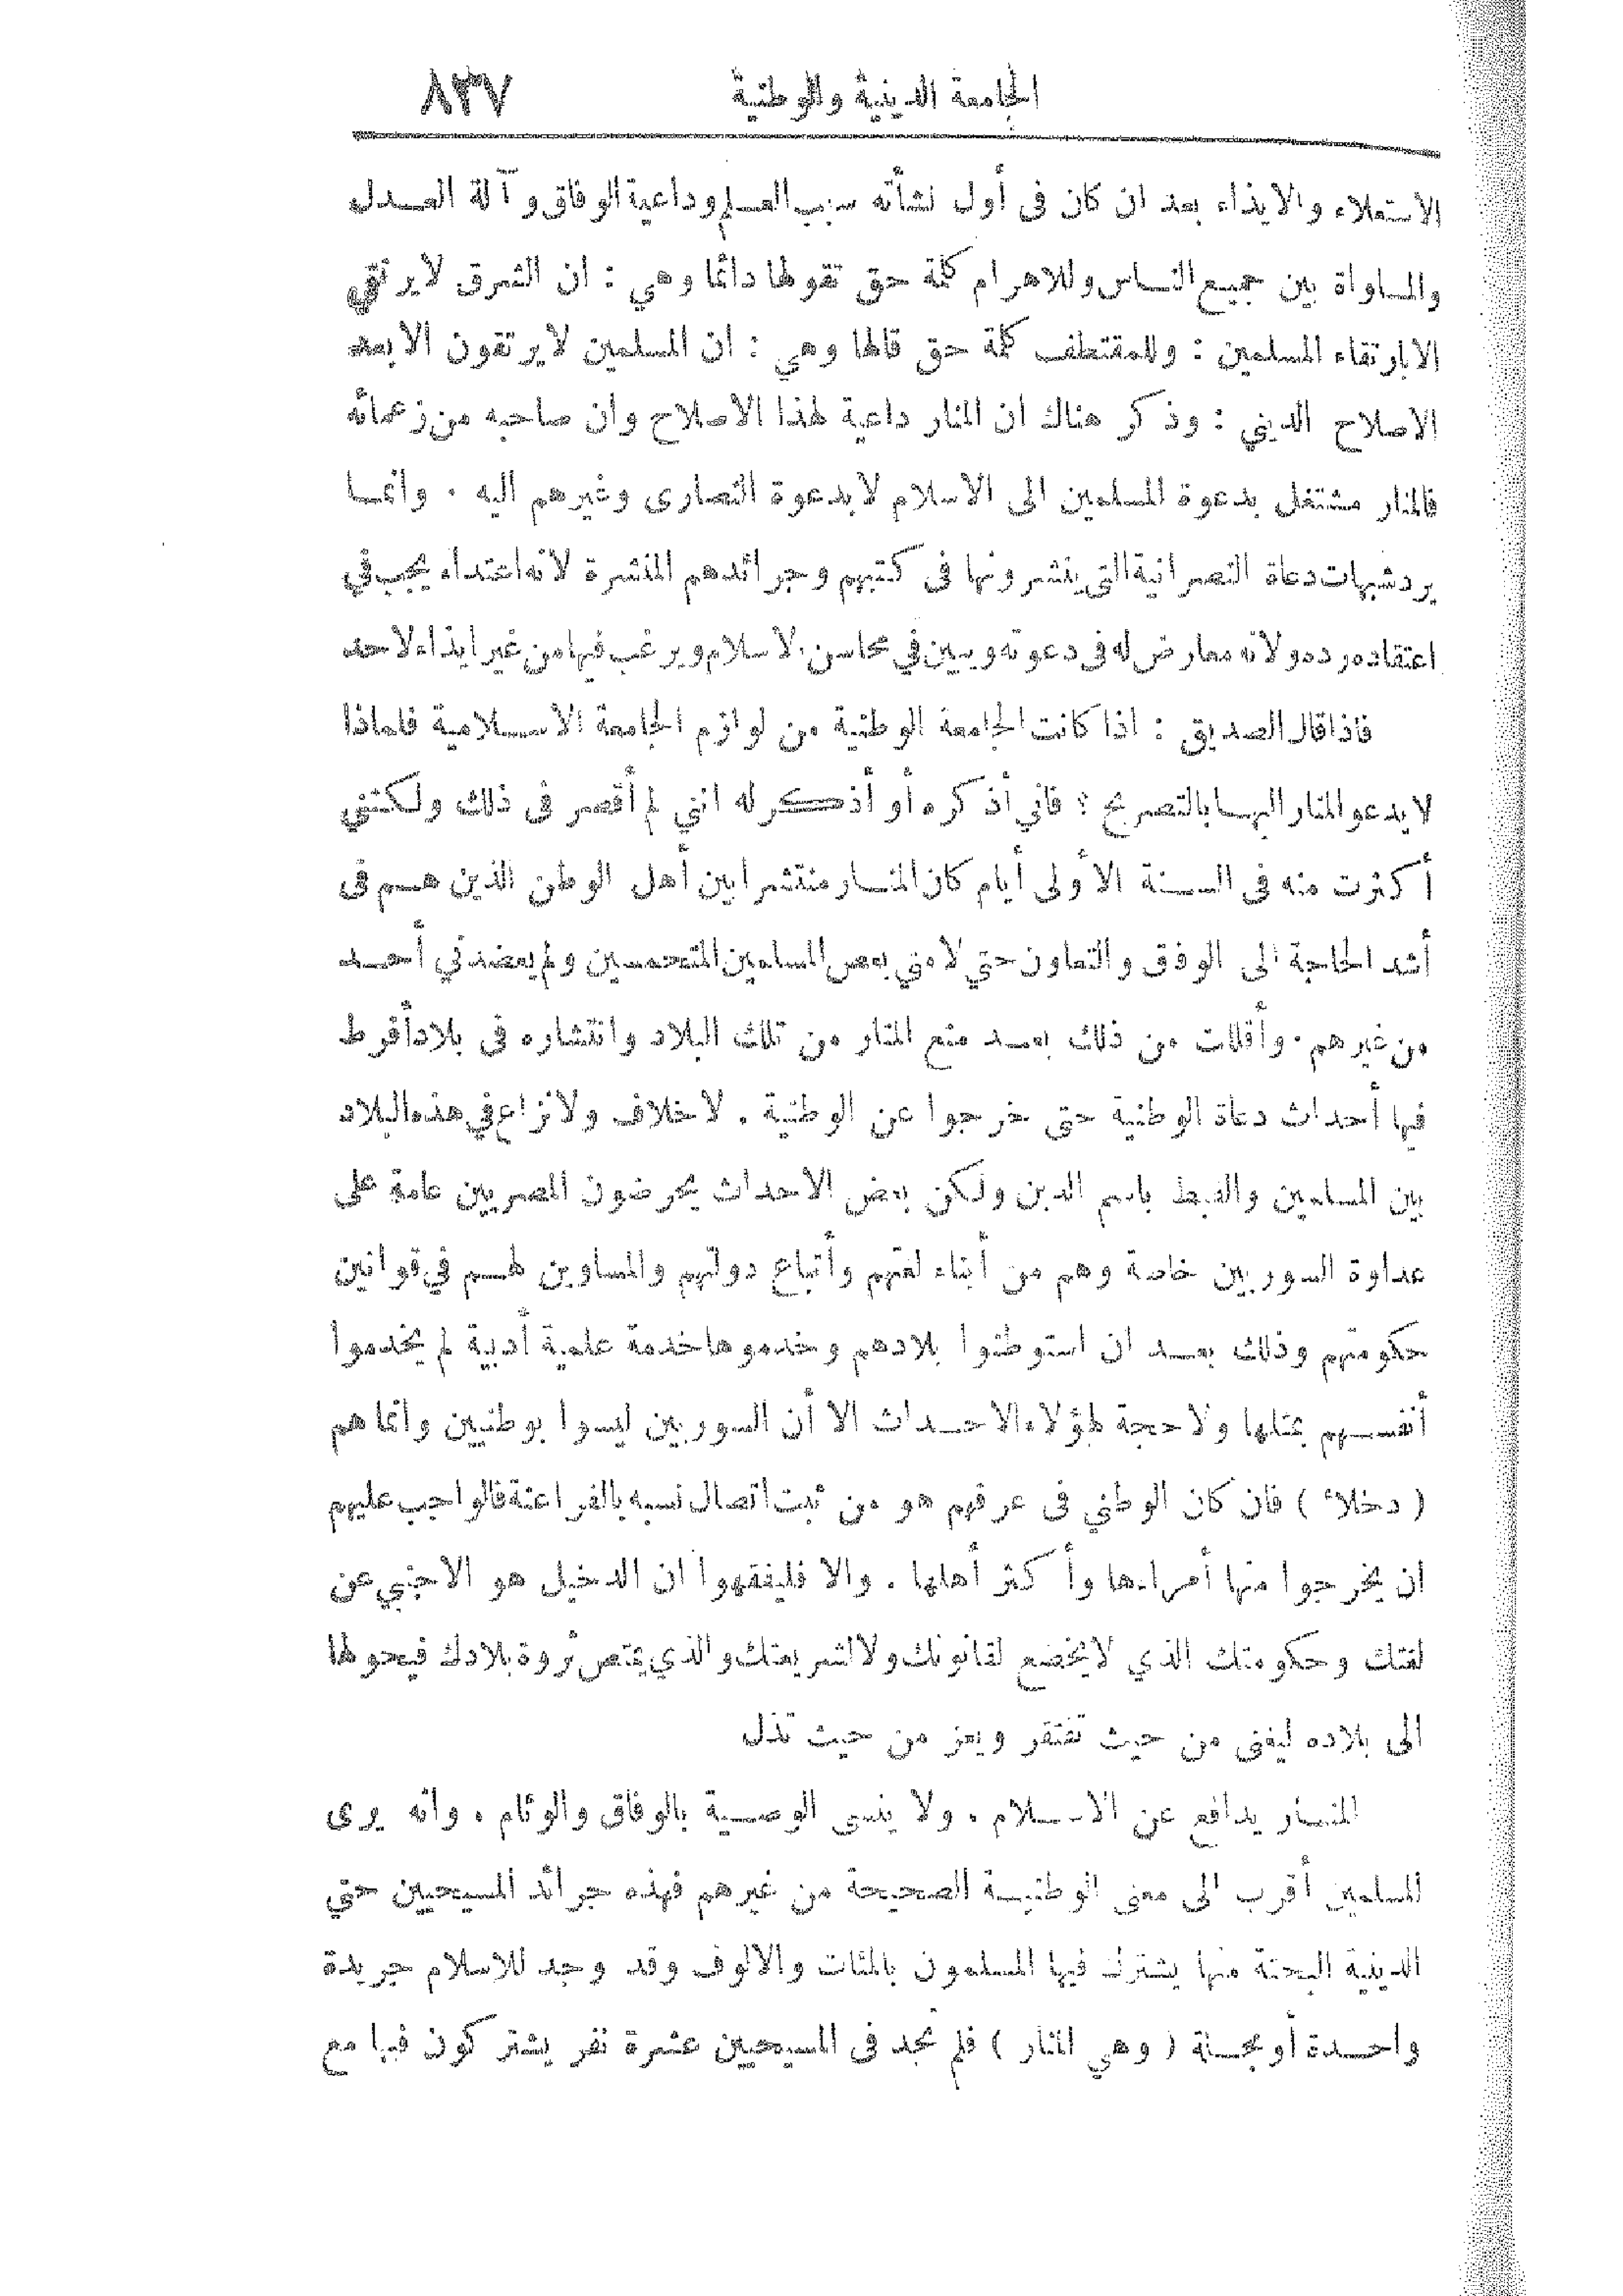 الجامعة الدينية والوطنية ٨٣٧
الاستعلاء والايذاء بعد ان كان فى أول نشأته سبب العلم وداعية الوفاق وآلة العدل
والمساواة بين جميع الناس وللاهرام كلمة حق تقولها دائما وهي : ان الشرق لا يرتقي
الا بارتقاء المسلمين : وللمقتطف كلمة حق قالها وهي : ان المسلمين لا يرتقون الا بعد
الاصلاح الديني : وذكر هناك ان المنار داعية لهذا الاصلاح وان صاحبه من زعمائه
فالمنار مشتغل بدعوة المسلمين الى الاسلام لا بدعوة النصارى وغيرهم اليه . وانما
يرد شبهات دعاة النصرانية التى ينشرونها فى كتبهم وجرائدهم المنشرة لانه اعتداء يجب في
اعتقاده رده ولانه معارض له فى دعوته ويبين في محاسن الاسلام ويرغب فيها من غير ايذاء لاحد
فاذا قال الصديق : اذا كانت الجامعة الوطنية من لوازم الجامعة الاسلامية فلماذا
لا يدعو المنار اليها بالتصريح ؟ فاني أذكره أو أذكر له انني لم أقصر فى ذلك ولكنني
أكثرت منه فى السنة الأولى أيام كان المنار منتشرا بين أهل الوطن الذين هم فى
أشد الحاجة الى الوفق والتعاون حتي لامني بعض المسلمين المتحمسين ولم يعضدني أحد
من غيرهم . وأقللت من ذلك بعد منع المنار من تلك البلاد وانتشاره فى بلاد أفرط
فيها أحداث دعاة الوطنية حتى خرجوا عن الوطنية . لا خلاف ولا نزاع في هذه البلاد
بين المسلمين والقبط باسم الدين ولكن بعض الاحداث يحرضون المصريين عامة على
عداوة السوريين خاصة وهم من أبناء لغتهم وأتباع دولتهم والمساوين لهم في قوانين
حكومتهم وذلك بعد ان استوطنوا بلادهم وخدموها خدمة علمية أدبية لم يخدموا
أنفسهم بمثلها ولا حجة لهؤلاء الاحداث الا أن السوريين ليسوا بوطنيين وانما هم
( دخلاء ) فان كان الوطني فى عرفهم هو من ثبت اتصال نسبه بالفراعنة فالواجب عليهم
ان يخرجوا منها أمراءها وأكثر أهلها . والا فليفقهوا ان الدخيل هو الاجنبي عن
لغتك وحكومتك الذي لا يخضع لقانونك ولا لشريعتك والذي يمتص ثروة بلادك فيحولها
الى بلاده ليغنى من حيث تفتقر ويعز من حيث تذل
المنار يدافع عن الاسلام . ولا ينسى الوصية بالوفاق والوئام . وانه يرى
المسلمين أقرب الى معنى الوطنية الصحيحة من غيرهم فهذه جرائد المسيحيين حتي
الدينية البحتة منها يشترك فيها المسلمون بالمئات والالوف وقد وجد للاسلام جريدة
واحدة أو مجلة ( وهي المنار ) فلم نجد فى المسيحيين عشرة نفر يشتركون فيها مع